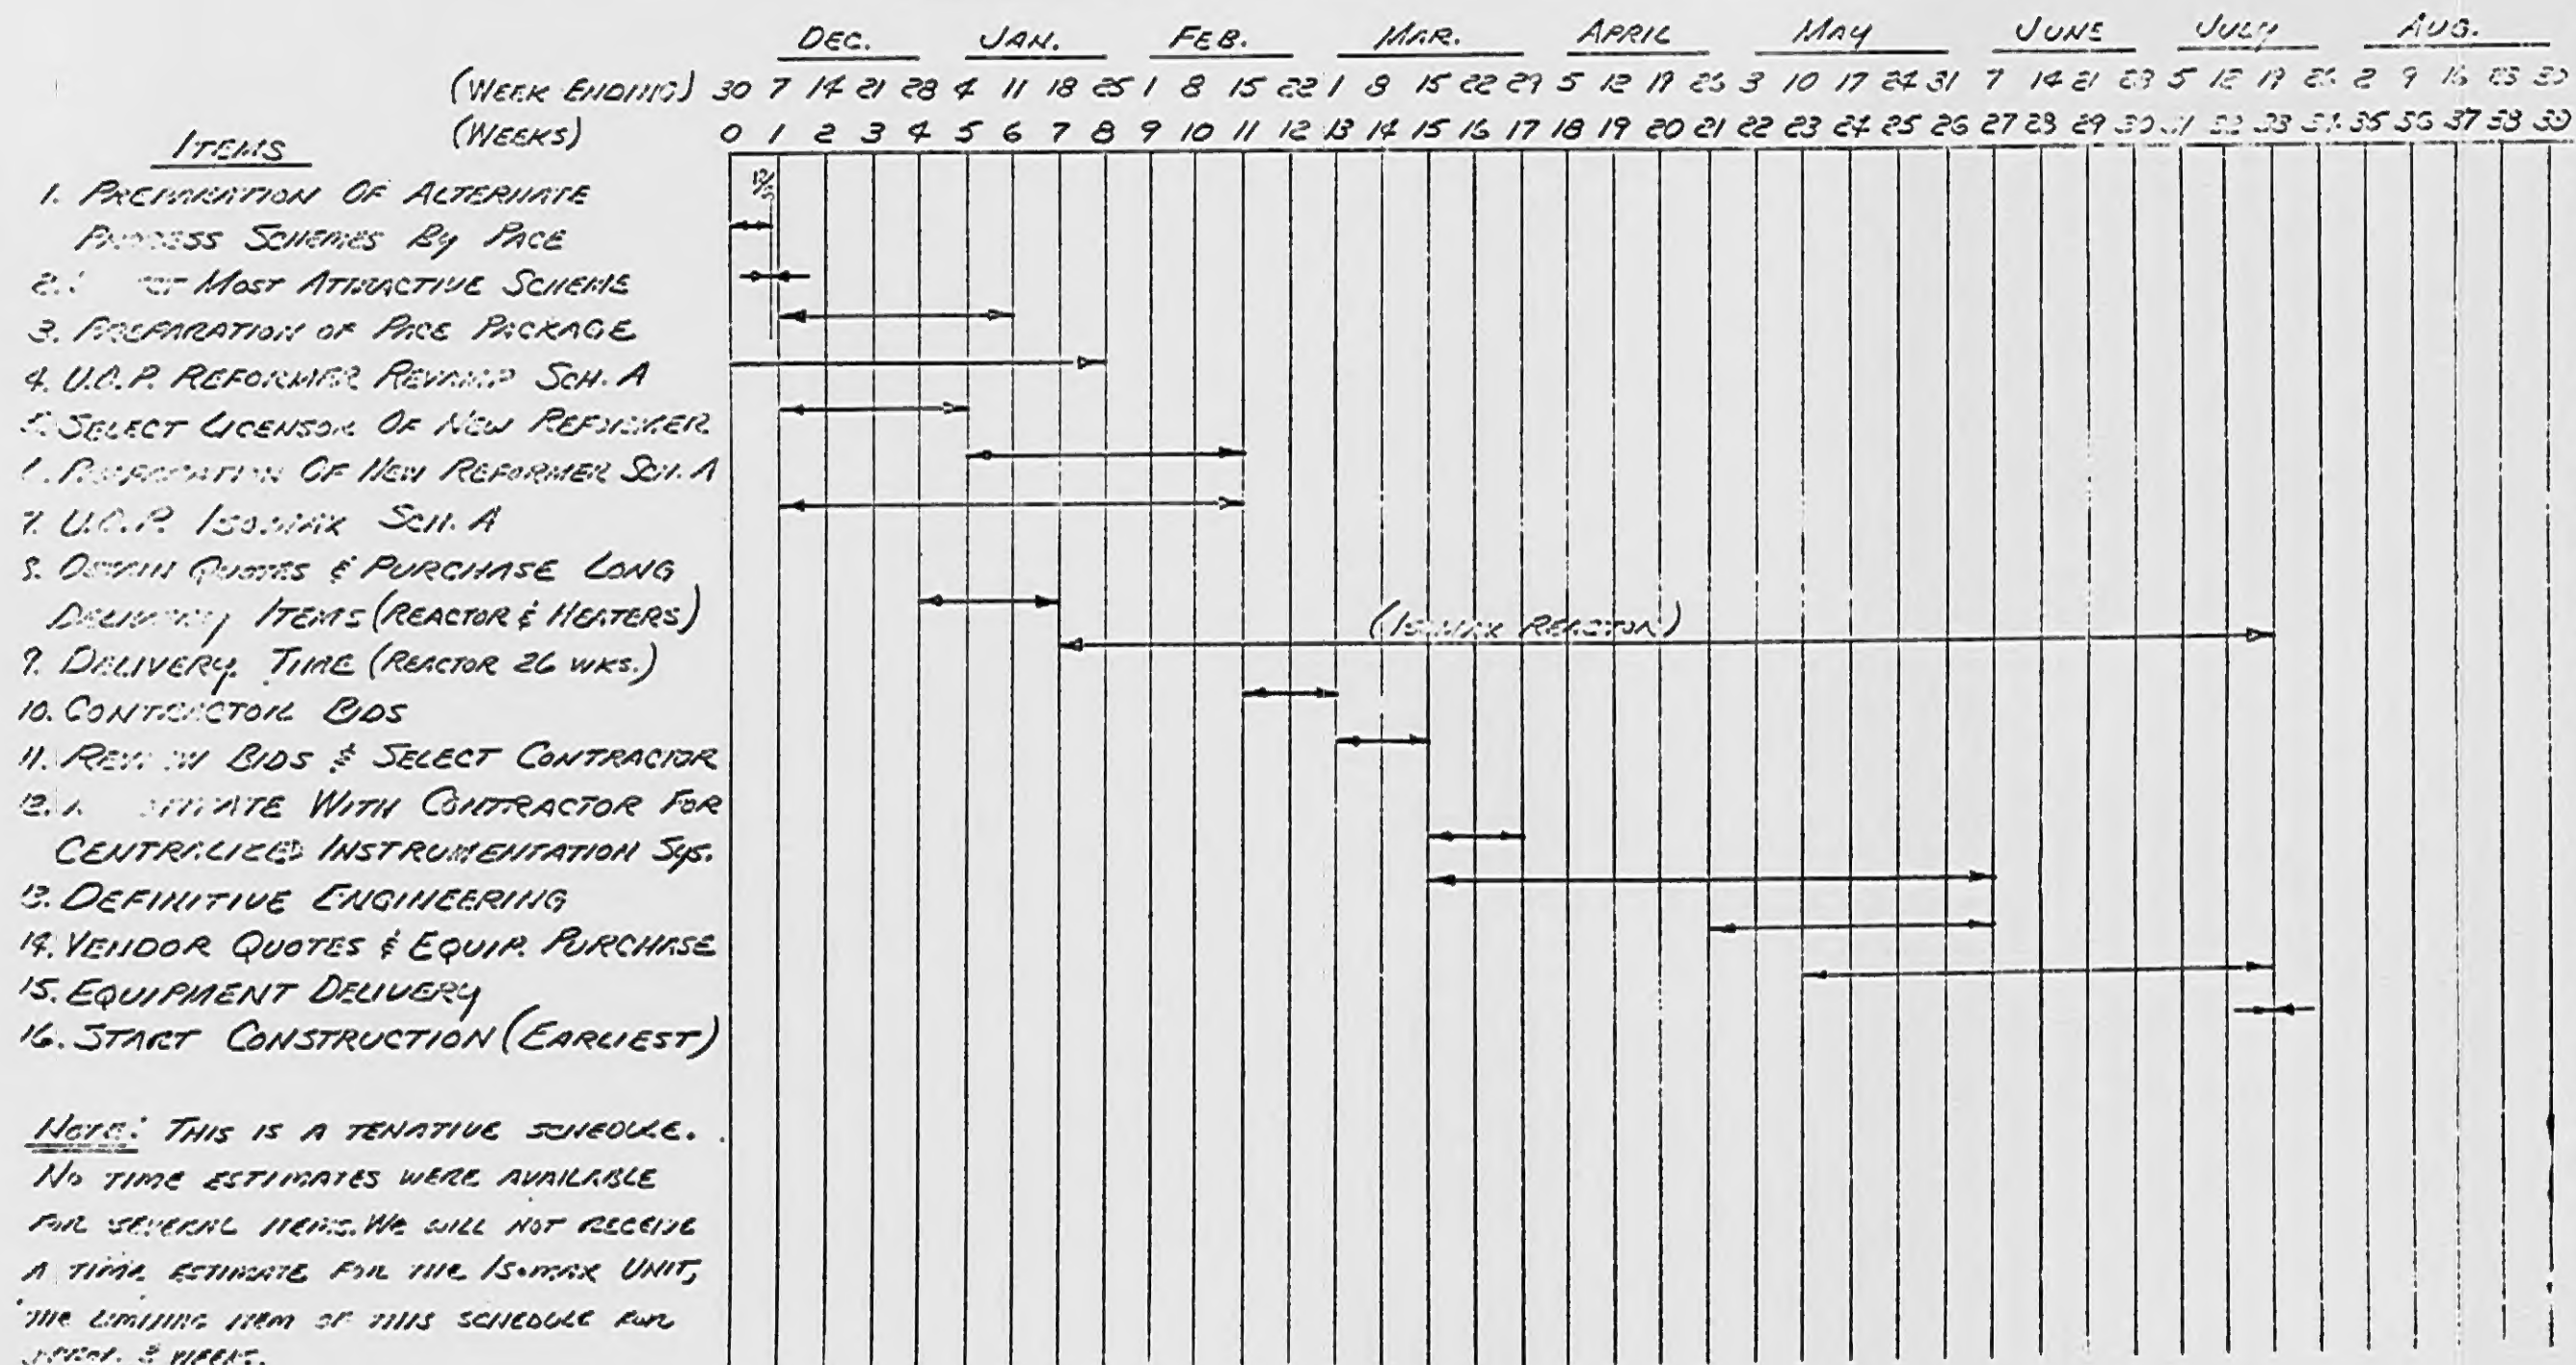 DEC. JAN. FEB. MAR. APRIL MAY JUNE JULY AUG.
(WEEK ENDING) 30 7 14 21 28 4 11 18 25 1 8 15 22 1 8 15 22 29 5 12 19 26 3 10 17 24 31 7 14 21 28 5 12 19 26 2 9 16 23 30
(WEEKS) 0 1 2 3 4 5 6 7 8 9 10 11 12 13 14 15 16 17 18 19 20 21 22 23 24 25 26 27 28 29 30 31 32 33 34 35 36 37 38 39
ITEMS
1. PREPARATION OF ALTERNATE
PROCESS SCHEMES BY PACE
2. MOST ATTRACTIVE SCHEME
3. PREPARATION OF PACE PACKAGE
4. U.O.P. REFORMER REVAMP SCH. A
5. SELECT LICENSOR OF NEW REFORMER
6. OF NEW REFORMER SCH. A
7. U.O.P. ISOMAX SCH. A
8. OBTAIN QUOTES & PURCHASE LONG
DELIVERY ITEMS (REACTOR & HEATERS)
(ISOMAX REACTOR)
9. DELIVERY TIME (REACTOR 26 WKS.)
10. CONTRACTOR BIDS
11. REVIEW BIDS & SELECT CONTRACTOR
12. WITH CONTRACTOR FOR
CENTRALIZED INSTRUMENTATION SYS.
13. DEFINITIVE ENGINEERING
14. VENDOR QUOTES & EQUIP. PURCHASE
15. EQUIPMENT DELIVERY
16. START CONSTRUCTION (EARLIEST)
NOTE: THIS IS A TENATIVE SCHEDULE.
NO TIME ESTIMATES WERE AVAILABLE
FOR SEVERAL ITEMS. WE WILL NOT RECEIVE
A TIME ESTIMATE FOR THE ISOMAX UNIT,
THE LIMITING ITEM OF THIS SCHEDULE FOR
WEEKS.